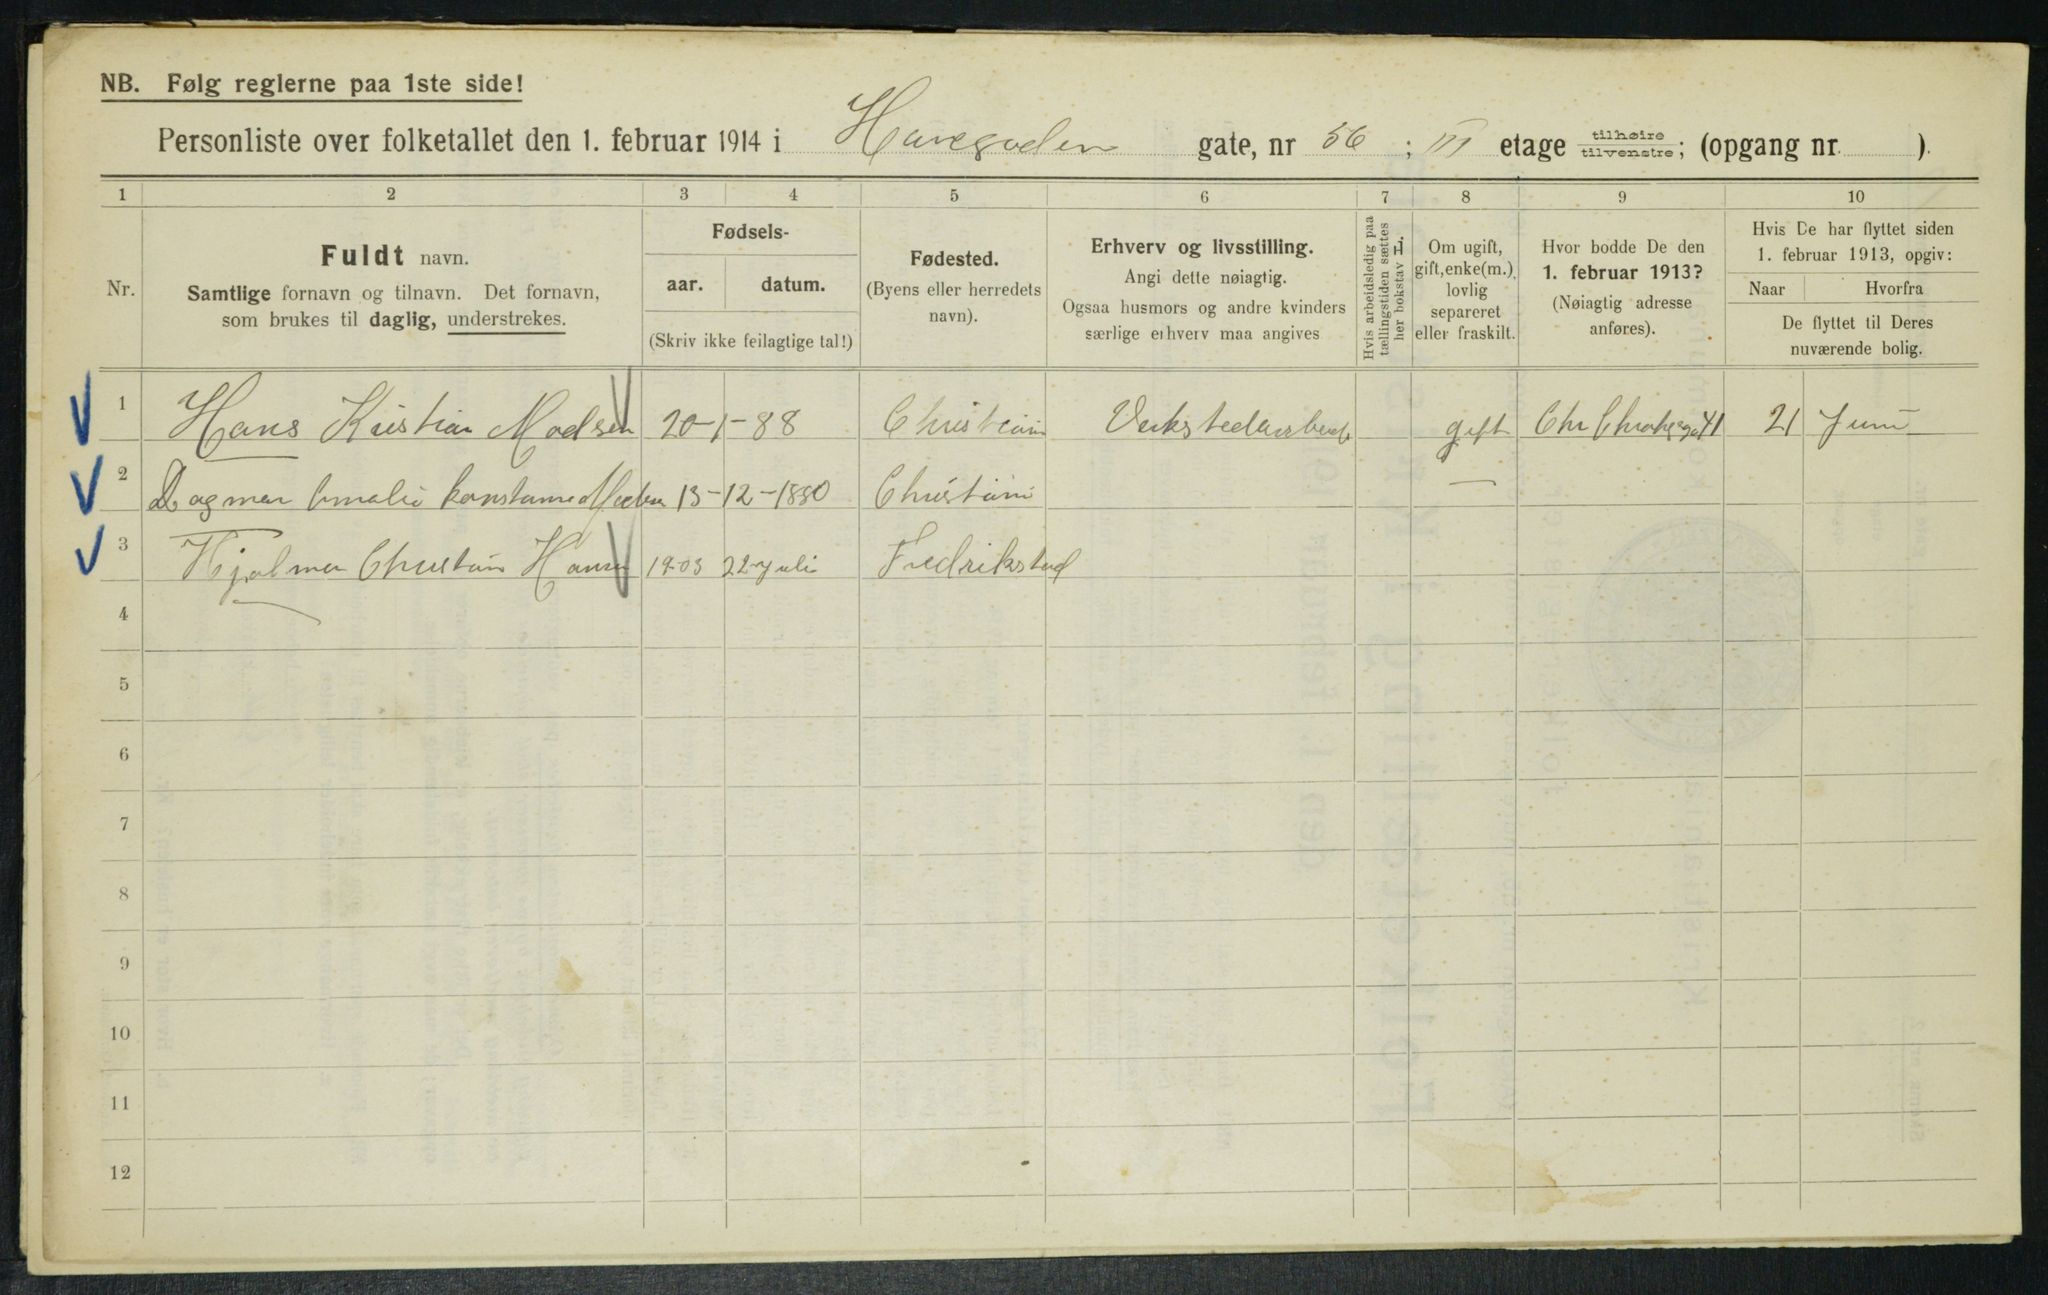 NB. Følg reglerne paa 1ste side!
Personliste over folketallet den 1. februar 1914 i Havegaden gate, nr 56 ; III etage tilhøire/tilvenstre; (opgang nr. ).
1 2 3 4 5 6 7 8 9 10
Nr.
Fuldt navn.
Samtlige fornavn og tilnavn. Det fornavn,
som brukes til daglig, understrekes.
Fødsels-
aar. datum.
(Skriv ikke feilagtige tal!)
Fødested.
(Byens eller herredets
navn).
Erhverv og livsstilling.
Angi dette nøiagtig.
Ogsaa husmors og andre kvinders
særlige erhverv maa angives
Hvis arbeidsledig paa
tællingstiden sættes
her bokstav L.
Om ugift,
gift, enke(m.),
lovlig
separeret
eller fraskilt.
Hvor bodde De den
1. februar 1913?
(Nøiagtig adresse
anføres).
Hvis De har flyttet siden
1. februar 1913, opgiv:
Naar Hvorfra
De flyttet til Deres
nuværende bolig.
1 Hans Kristian Madsen 20-1-88 Christiania Verkstedarbeide gift 41 21 Juni
2 Dagmar Amalie Konstanse Madsen 13-12-1880 Christiania —
3 Hjalmar Christian Hansen 1903 22 Juli Fredrikstad
4
5
6
7
8
9
10
11
12